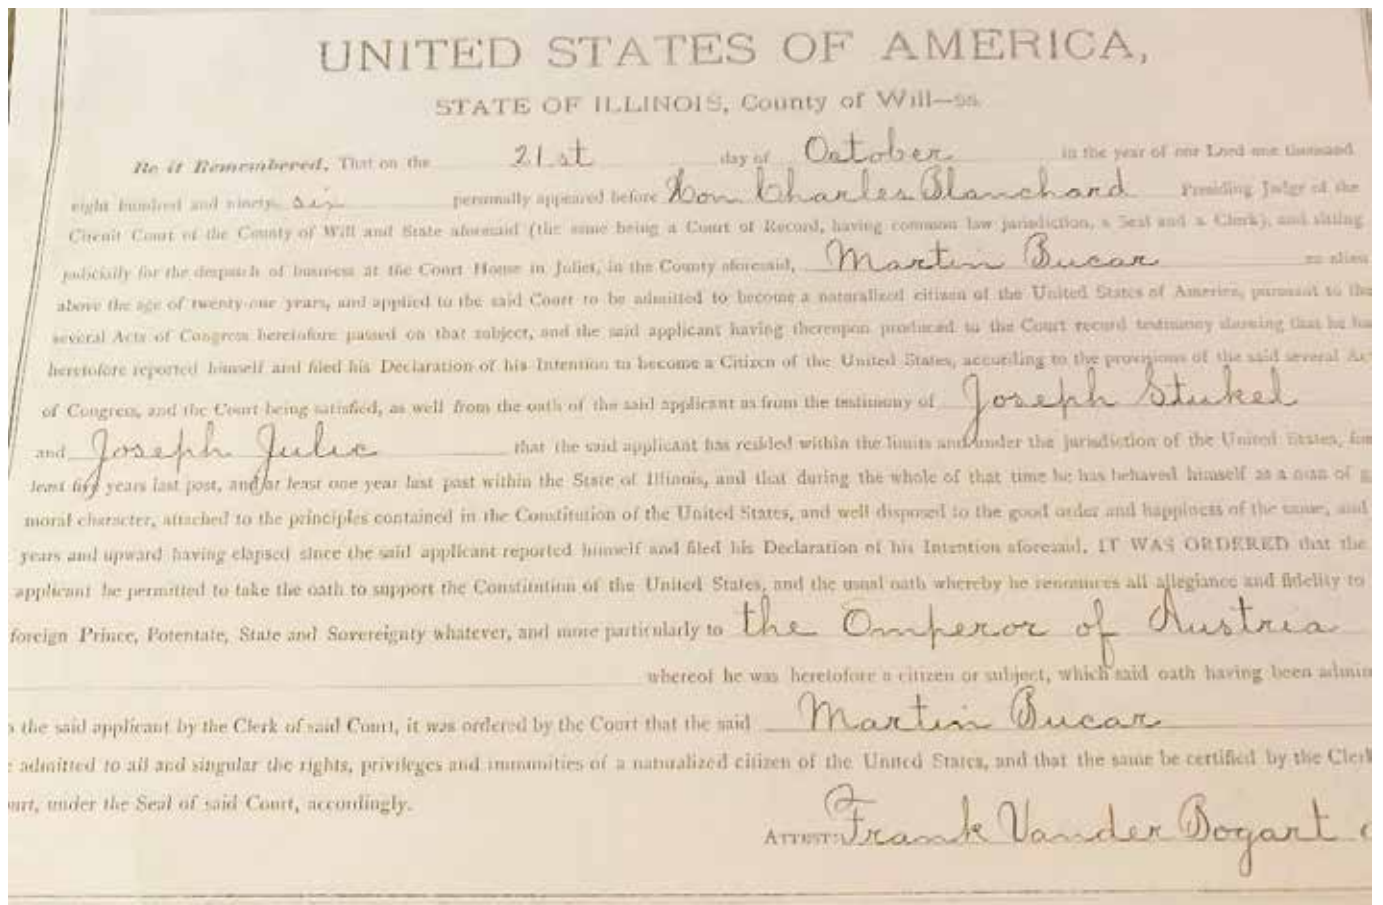 UNITED STATES OF AMERICA,
STATE OF ILLINOIS, County of Will—ss.
Be it Remembered, That on the 21st day of October in the year of our Lord one thousand
eight hundred and ninety six personally appeared before Hon Charles Blanchard Presiding Judge of the
Circuit Court of the County of Will and State aforesaid (the same being a Court of Record, having common law jurisdiction, a Seal and a Clerk), and sitting
judicially for the despatch of business at the Court House in Joliet, in the County aforesaid, Martin Bucar an alien
above the age of twenty-one years, and applied to the said Court to be admitted to become a naturalized citizen of the United States of America, pursuant to the
several Acts of Congress heretofore passed on that subject, and the said applicant having thereupon produced to the Court record testimony showing that he has
heretofore reported himself and filed his Declaration of his Intention to become a Citizen of the United States, according to the provisions of the said several Ac
of Congress, and the Court being satisfied, as well from the oath of the said applicant as from the testimony of Joseph Stukel
and Joseph Julic that the said applicant has resided within the limits and under the jurisdiction of the United States, for
least five years last post, and at least one year last past within the State of Illinois, and that during the whole of that time he has behaved himself as a man of g
moral character, attached to the principles contained in the Constitution of the United States, and well disposed to the good order and happiness of the same, and
years and upward having elapsed since the said applicant reported himself and filed his Declaration of his Intention aforesaid, IT WAS ORDERED that the
applicant be permitted to take the oath to support the Constitution of the United States, and the usual oath whereby he renounces all allegiance and fidelity to
foreign Prince, Potentate, State and Sovereignty whatever, and more particularly to the Emperor of Austria
whereof he was heretofore a citizen or subject, which said oath having been admin
the said applicant by the Clerk of said Court, it was ordered by the Court that the said Martin Bucar
admitted to all and singular the rights, privileges and immunities of a naturalized citizen of the United States, and that the same be certified by the Clerk
urt, under the Seal of said Court, accordingly.
ATTEST: Frank Vander Bogart